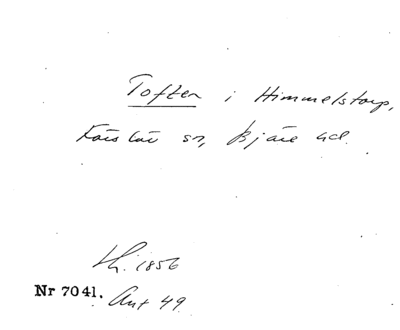 Toften i Himmelstorp,
Förslöv sn, Bjäre hd.
Lh. 1856
Nr 7041. Ant 49